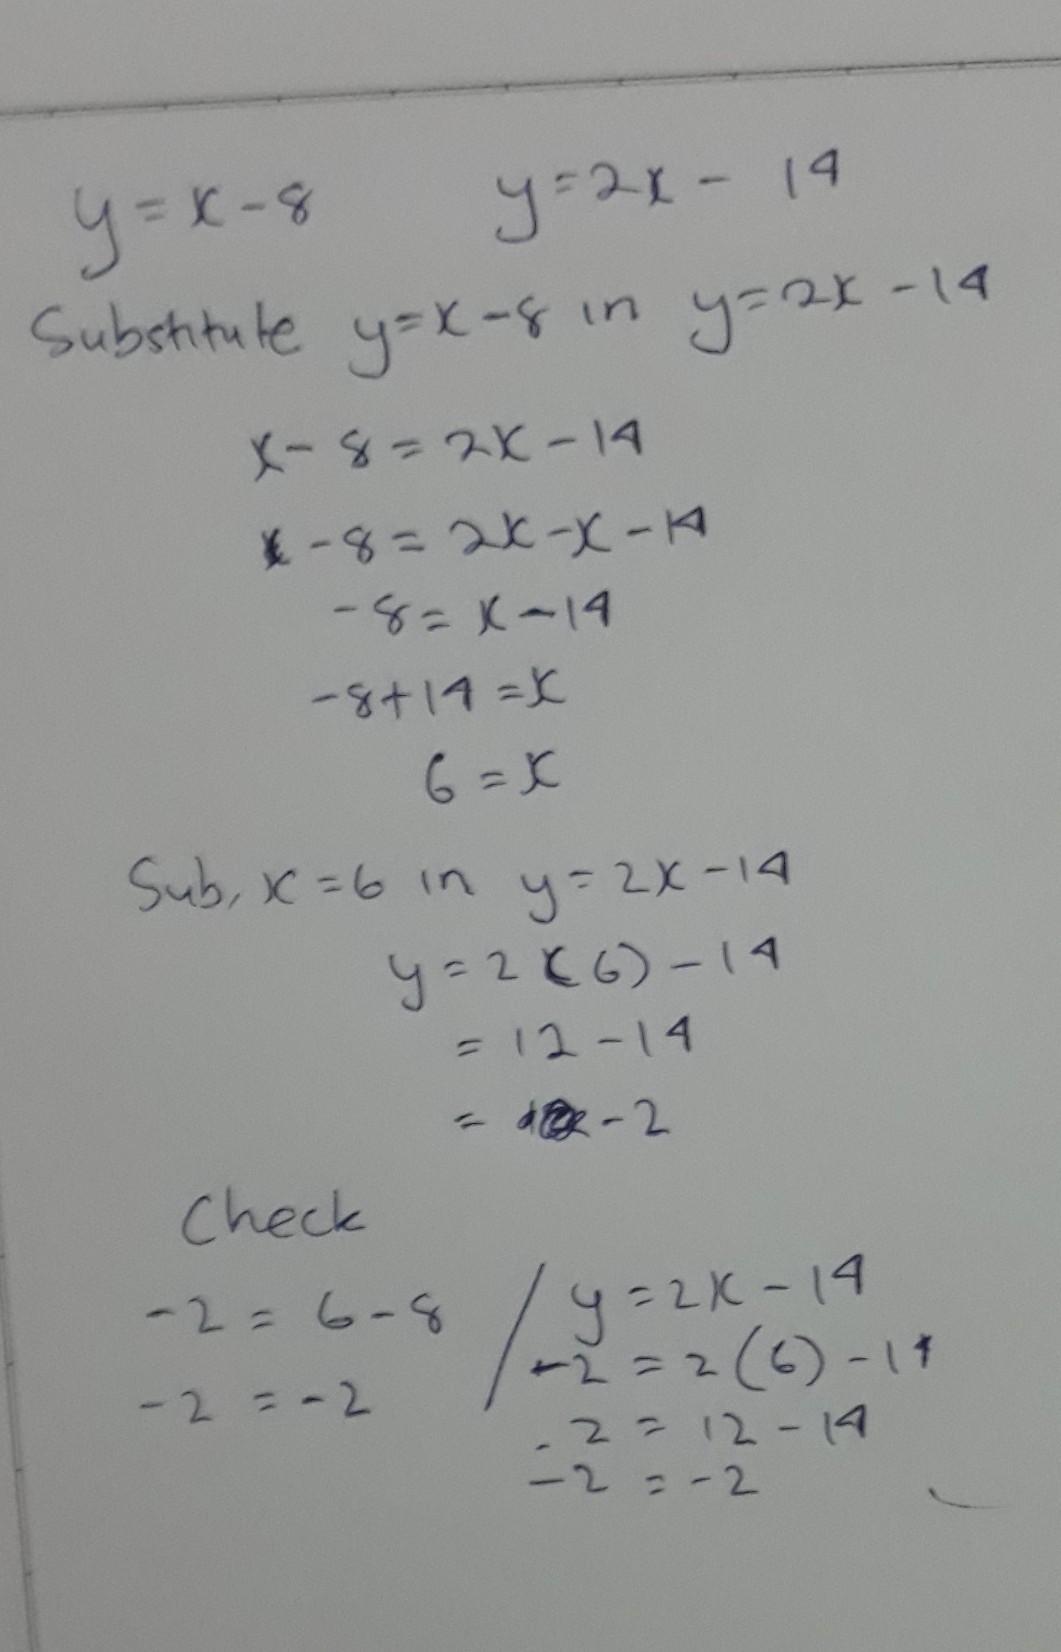 y=x-8 y=2x-14
Substitute y=x-8 in y=2x-14
x-8=2x-14
x-8=2x-x-14
-8=x-14
-8+14=x
6=x
Sub, x=6 in y=2x-14
y=2(6)-14
=12-14
=-2
Check
-2=6-8 / y=2x-14
-2=-2 / -2=2(6)-14
-2=12-14
-2=-2